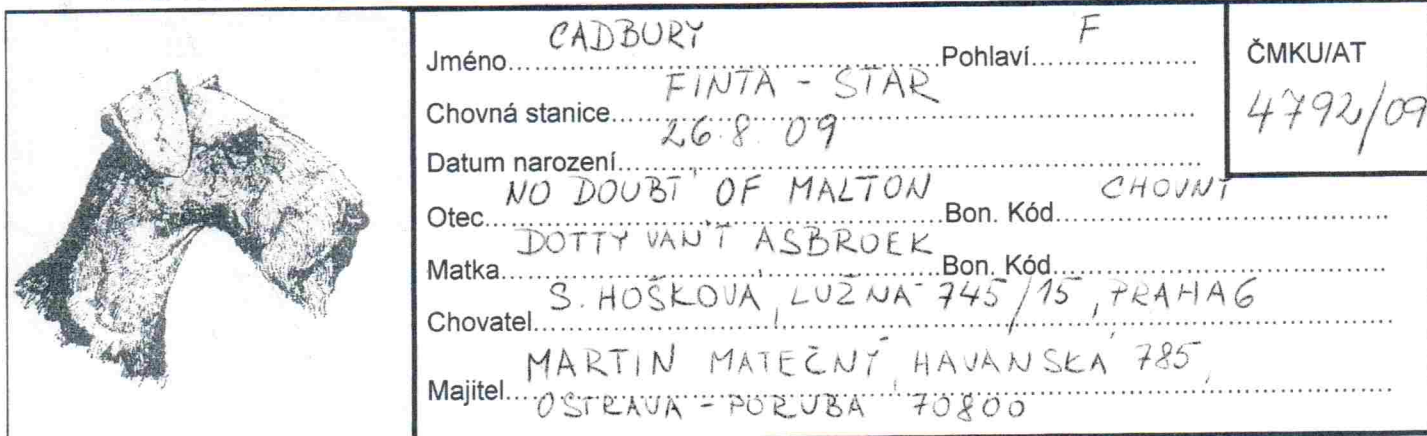 Jméno CADBURY Pohlaví F
ČMKU/AT
4792/09
Chovná stanice FINTA - STAR
Datum narození 26.8.09
Otec NO DOUBT OF MALTON Bon. Kód CHOVNÝ
Matka DOTTY VAN'T ASBROEK Bon. Kód
Chovatel S. HOŠKOVÁ, LUŽNÁ 745/15, PRAHA 6
Majitel MARTIN MATEČNÝ, HAVANSKÁ 785,
OSTRAVA - PORUBA 70800